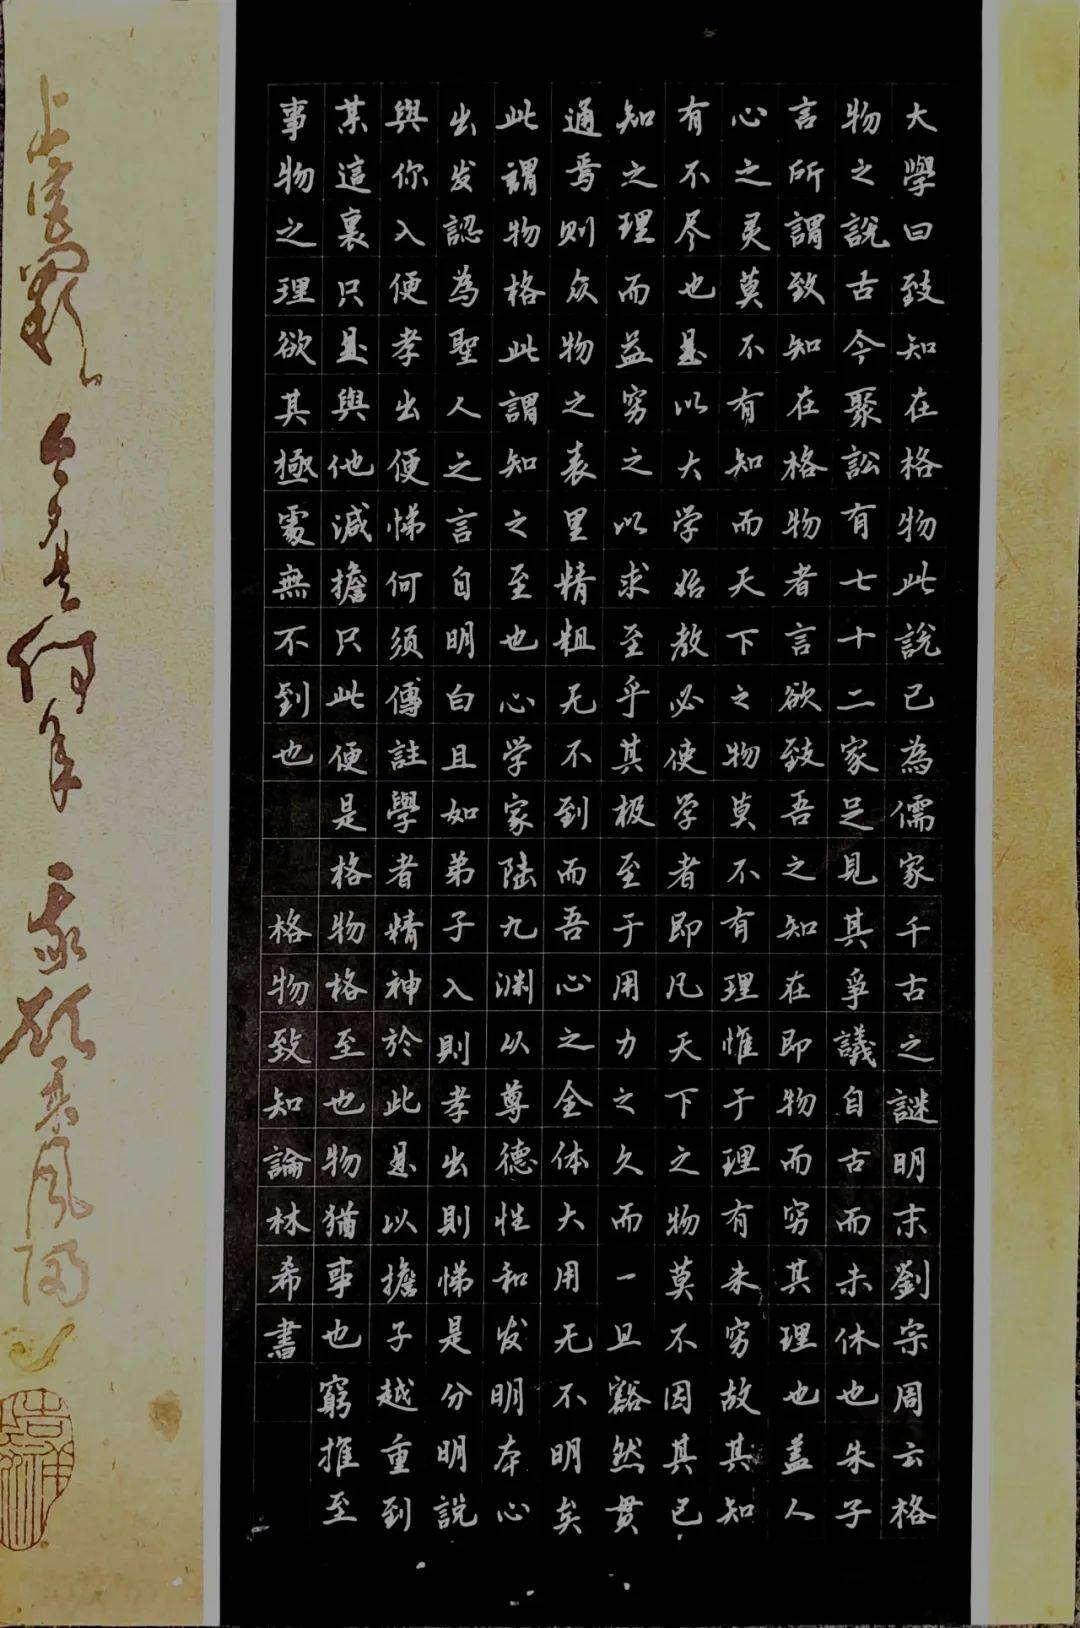 大學曰致知在格物此說已為儒家千古之謎明末劉宗周云格
物之說古今聚訟有七十二家足見其爭議自古而未休也朱子
言所謂致知在格物者言欲致吾之知在即物而穷其理也盖人
心之灵莫不有知而天下之物莫不有理惟于理有未穷故其知
有不尽也是以大学始教必使学者即凡天下之物莫不因其已
知之理而益穷之以求至乎其极至于用力之久而一旦豁然贯
通焉则众物之表里精粗无不到而吾心之全体大用无不明矣
此謂物格此謂知之至也心学家陆九渊以尊德性和发明本心
出发認為聖人之言自明白且如弟子入則孝出則悌是分明說
與你入便孝出便悌何須傳註學者精神於此是以擔子越重到
某這裏只是與他減擔只此便是格物格至也物猶事也窮推至
事物之理欲其極處無不到也 格物致知論林希書
上宫阙 今夕是何年 我欲乘风归